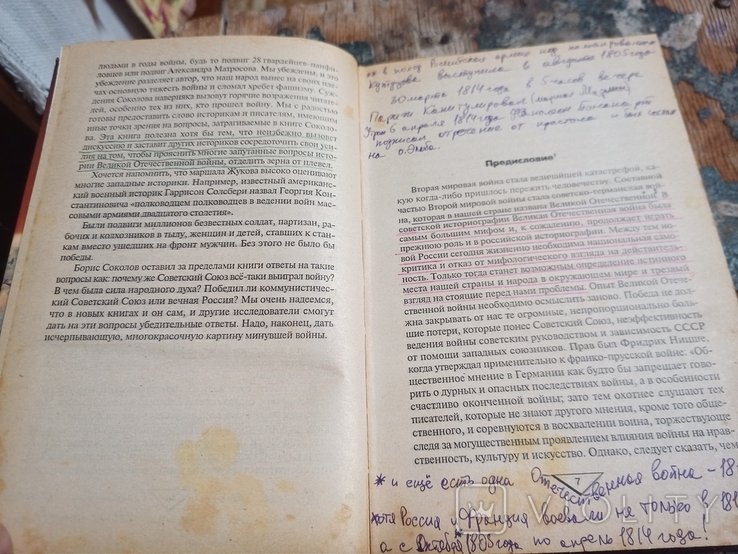 людьми в годы войны, будь то подвиг 28 гвардейцев-панфи-
ловцев или подвиг Александра Матросова. Мы убеждены, и это
убеждение разделяет автор, что наш народ вынес на своих
плечах основную тяжесть войны и сломал хребет фашизму. Суж-
дения Соколова наверняка вызовут отторжение у части чита-
телей, особенно тех из них, кто прошел войну. Мы с радостью
готовы предоставить слово историкам и писателям, имеющим
иные точки зрения на вопросы, затрагиваемые в книге Соколо-
ва. Эта книга полезна хотя бы тем, что неизбежно вызовет
дискуссию и заставит других историков сосредоточить свои уси-
лия на том, чтобы прояснить многие запутанные вопросы исто-
рии Великой Отечественной войны, отделить зерна от плевел.
Хочется напомнить, что маршала Жукова высоко оценивают
многие западные историки. Например, известный американ-
ский военный историк Гаррисон Солсбери назвал Георгия Кон-
стантиновича «полководцем полководцев в ведении войн мас-
совыми армиями двадцатого столетия».
Были подвиги миллионов безвестных солдат, партизан, ра-
бочих и колхозников в тылу, женщин и детей, ставших к стан-
кам вместо ушедших на фронт мужчин. Без этого не было бы
победы.
Борис Соколов оставил за пределами книги ответы на такие
вопросы как: почему же Советский Союз всё-таки выиграл войну?
В чем была сила народного духа? Победил ли коммунистичес-
кий Советский Союз или вечная Россия? Мы очень надеемся,
что в новых книгах и он сам, и другие исследователи смогут
дать на эти вопросы убедительные ответы. Надо, наконец, дать
исчерпывающую, многокрасочную картину минувшей войны.
** в поход Российская армия под командованием
Кутузова выступила в августе 1805 года
30 марта 1814 года в 5 часов вечера
Париж Капитулировал (маршал
6 апреля 1814 года Наполеон Бонапарт
подписал отречение от престола и был сослан
на о. Эльба.
Предисловие
Вторая мировая война стала величайшей катастрофой, ка-
кую когда-либо пришлось пережить человечеству. Составной
частью Второй мировой войны стала советско-германская вой-
на, которая в нашей стране названа Великой Отечественной. В
советской историографии Великая Отечественная война была
самым большим мифом и, к сожалению, продолжает играть
прежнюю роль и в российской историографии. Между тем но-
вой России сегодня жизненно необходима национальная само-
критика и отказ от мифологического взгляда на действитель-
ность. Только тогда станет возможным определение истинного
места нашей страны и народа в окружающем мире и трезвый
взгляд на стоящие перед нами проблемы. Опыт Великой Отече-
ственной войны необходимо осмыслить заново. Победа не дол-
жна закрывать от нас те огромные, непропорционально боль-
шие потери, которые понес Советский Союз, неэффективность
ведения войны советским руководством и зависимость СССР
от помощи западных союзников. Прав был Фридрих Ницше,
когда утверждал применительно к франко-прусской войне: «Об-
щественное мнение в Германии как будто бы запрещает гово-
рить о дурных и опасных последствиях войны, а в особенности
счастливо оконченной войны; зато тем охотнее слушают тех
писателей, которые не знают другого мнения, кроме того обще-
ственного, и соревнуются в восхвалении войны, торжествую-
ще следя за могущественным проявлением влияния войны на нрав-
ственность, культуру и искусство. Однако, следует сказать, чем
7
* и ещё есть одна Отечественная война - 18
хотя Россия и Франция воевали не только в 181
а с Октября* 1805 года по апрель 1814 года!
VIOLITY